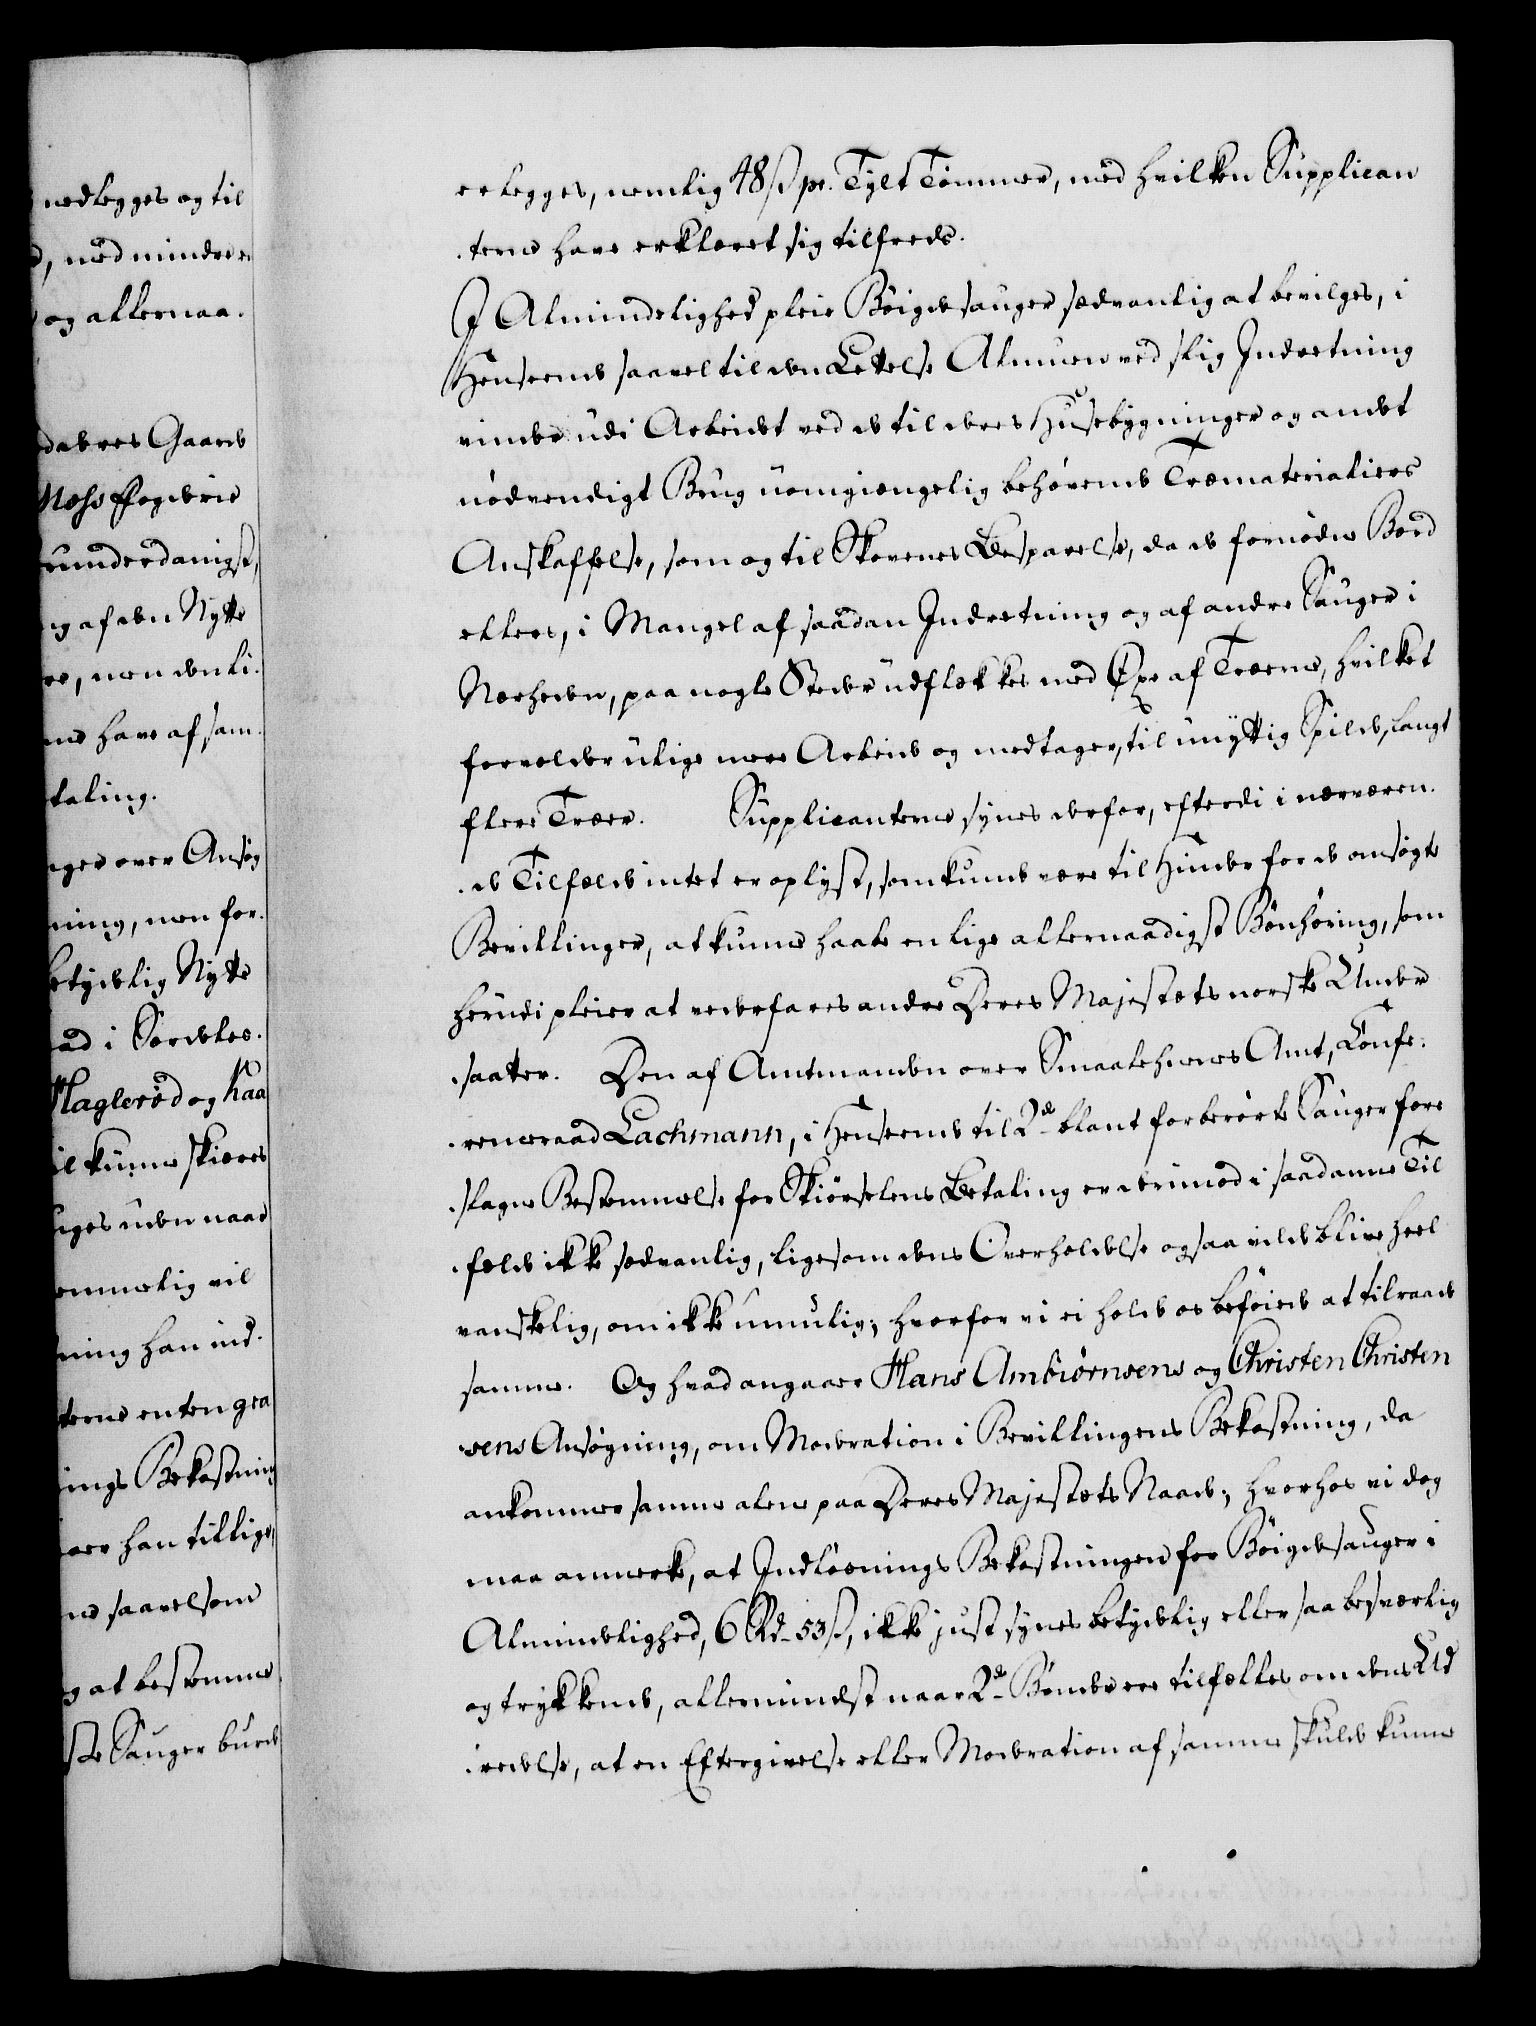 nedlegges og til
, med mindre er
og allernaa¬
dabres Gaard
Mosse Fogderie
underdanigst,
ng af den Nytte
re, men den li¬
ne have af sam¬
taling.
nger over Ansøg
ning, men for¬
betydelig Nytte
ad i Særdeles¬
Haglerød og Kaa
il kunne skiæres
uges uden naar
emmelig vil
ning han ind¬
terne enten gra
ings Bekostning
ær han tillige,
ne saavelsom
og at bestemme
ste Sauger burde
erlegges, nemlig 48 ß pr. Tylt Tømmer, med hvilken Supplican
terne have erklæret sig tilfreds.
I Almindelighed pleie Böigdesauger sædvanlig at bevilges, i
Henseende saavel til den Lettelse Almuen ved slig Indretning
vinder udi Arbeidet ved de til deres Huusebygninger og andet
nödvendigt Brug uomgiængelig behøvende Træmaterialiers
Anskaffelse, som og til Skovenes Besparelse, da de fornødne Bord
ellers, i Mangel af saadan Indretning og af andre Sauger i
Nærheden, paa nogle Steder udflækkes med Øxe af Træerne, hvilket
forvolder ulige mere Arbeide og medtager, til unyttig Spilde, langt
flere Træer. Supplicanterne synes derfor, efterdi i nærværen¬
de Tilfælde intet er oplyst, som kunde være til Hinder for de ansøgte
Bevillinger, at kunne haabe en lige allernaadigst Bönhöring, som
herudi pleier at vederfares andre Deres Majestæts norske Under
saatter. Den af Amtmanden over Smaalehnenes Amt, Confe¬
renceraad Lachmann, i Henseende til 2de blant forberørte Sauger fore
slagne Bestemmelse for Skiørselens Betaling er derimod i saadanne Til
fælde ikke sædvanlig, ligesom dens Overholdelse ogsaa vilde blive heel
vanskelig, om ikke umulig; hvorfor vi ei holde os beföiede at tilraade
samme. Og hvad angaaer Hans Ambiörnsens og Christen Christen
sens Ansøgning, om Moderation i Bevillingens Bekostning, da
ankommer samme alene paa Deres Majestæts Naade; hvorhos vi dog
maa anmerke, at Indløsnings Bekostningen for Böigdesauger i
Almindelighed, 6 Rd. 53 ß, ikke just synes betydelig eller saa besværlig
og trykkende, allermindst naar 2de Bönder ere tilfælles om dens Ud
redelse, at en Eftergivelse eller Moderation af samme skulde kunne